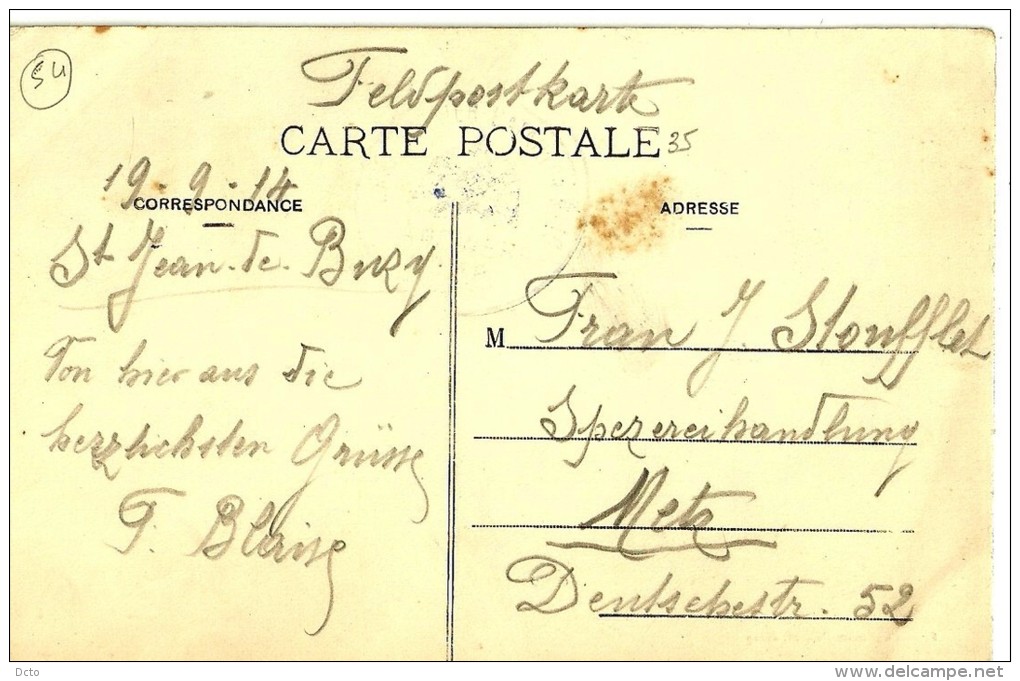 54
Feldpostkarte
CARTE POSTALE 35
19.9.14
CORRESPONDANCE
St Jean-de-Buzy
Von hier aus die
herzlichsten Grüsse
ADRESSE
M Frau J. Stoufflet
Spezereihandlung
Metz
Deutschestr. 52
Dcto
www.delcampe.net